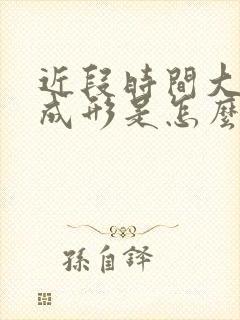 近段時間大
成形是怎麼
孫自譯